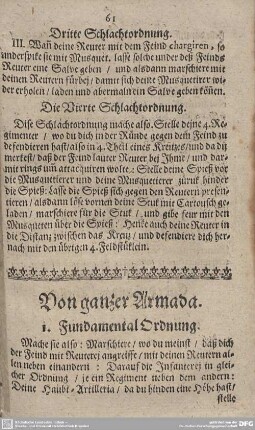 61
Dritte Schlachtordnung.
III. Wañ deine Reuter mit dem Feind chargiren, so
underspike sie mit Musquet. lasse solche under deß Feinds
Reuter eine Salve geben / und alsdann marschiere mit
deinen Reutern fürbas / damit sich deine Musquetirer wi-
der erholen / laden und abermal ein Salve geben können.
Die Vierte Schlachtordnung.
Dise Schlachtordnung mache also. Stelle deine 4. Re-
gimenter / wo du dich in der Runde gegen dem Feind zu
defendieren hast / also in 4. Theil eines Kreutzes / und da du
merkest / daß der Feind lauter Reuter bey Ihme / und dar-
mit rings um attacquiren wolte: Stelle deine Spieß vor
die Musquetierer und deine Musquetierer zuruk hinder
die Spieß: Lasse die Spieß sich gegen den Reutern presen-
tieren / alsdann löse vornen deine Stuk mit Cartousch ge-
laden / marschiere für die Stuk / und gibe feur mit den
Musqueten über die Spieß: Henke auch deine Reuter in
die Distanz zwischen das Kreuz / und defendiere dich her-
nach mit den übrigen 4. Feldstüklein.
Von ganzer Armada.
1. Fundamental Ordnung.
Mache sie also: Marschiere / wo du meinst / daß dich
der Feind mit Reuterej angreiffe / mit deinen Reutern al-
len neben einander: Darauf die Infanterej in glei-
cher Ordnung / je ein Regiment neben dem andern:
Deine Haubt-Artilleria / da du hinden eine Höhe hast /
stelle